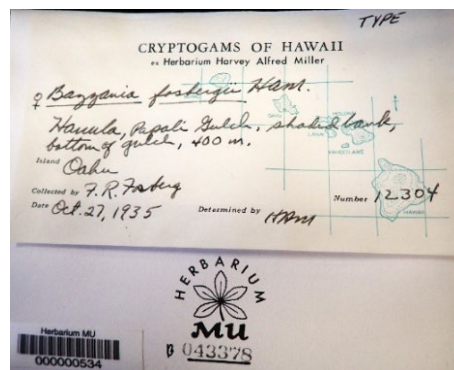 TYPE
CRYPTOGAMS OF HAWAII
ex Herbarium Harvey Alfred Miller
♀ Bazzania fosbergii HAM.
Hauula, Papali Gulch, shaded bank,
bottom of gulch, 400 m.
Island Oahu
Collected by F. R. Fosberg
Number 12304
Date Oct. 27, 1935
Determined by HAM
HERBARIUM
MU
B 043378
Herbarium MU
000000534